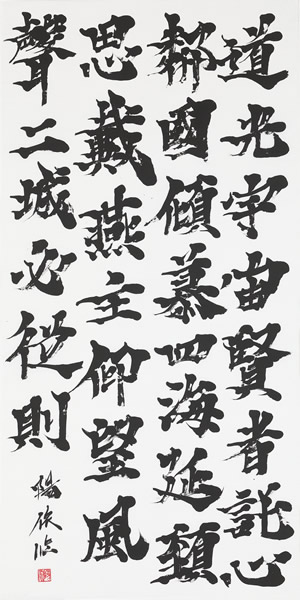 道光宇宙賢者託心
鄰國傾慕四海延頸
思戴燕主仰望風
聲二城必從則
臨